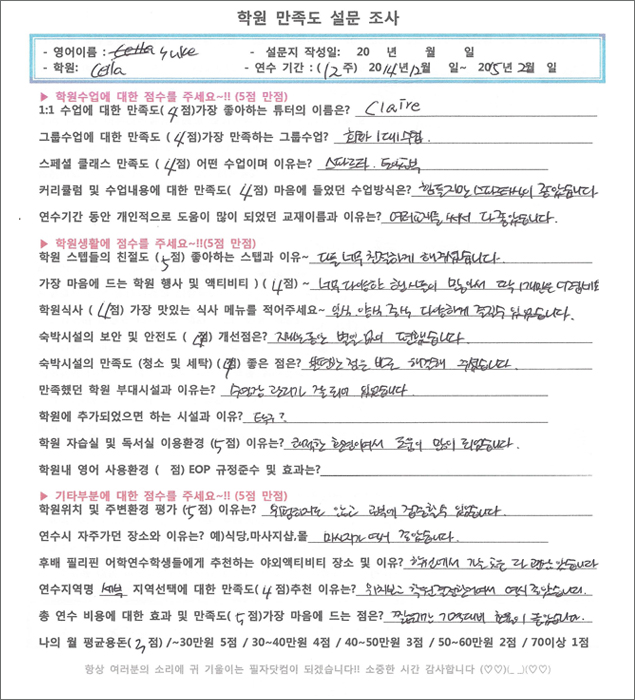 학원 만족도 설문 조사
- 영어이름 : Luke - 설문지 작성일: 20 년 월 일
- 학원: Cella - 연수 기간 : (12주) 2014년12월 일~ 2015년 2월 일
▶ 학원수업에 대한 점수를 주세요~!! (5점 만점)
1:1 수업에 대한 만족도( 4점)가장 좋아하는 튜터의 이름은? Claire
그룹수업에 대한 만족도( 4점)가장 만족하는 그룹수업? 회화 1대4수업
스페셜 클래스 만족도 ( 4점) 어떤 수업이며 이유는? 스파르타.
커리큘럼 및 수업내용에 대한 만족도( 4점) 마음에 들었던 수업방식은? 힘들지만 스파르타식이 좋았습니다
연수기간 동안 개인적으로 도움이 많이 되었던 교재이름과 이유는? 여러교재를 써서 다 좋았습니다.
▶ 학원생활에 점수를 주세요~!!(5점 만점)
학원 스텝들의 친절도 ( 5점) 좋아하는 스텝과 이유~ 다들 너무 친절하게 해주셨습니다
가장 마음에 드는 학원 행사 및 액티비티 ) ( 4점) ~ 너무 다양한 행사들이 많아서 딱 1개만은
학원식사 ( 4점) 가장 맛있는 식사 메뉴를 적어주세요~ 한식, 양식 중식, 다양하게 즐길수 있었습니다.
숙박시설의 보안 및 안전도 ( 4점) 개선점은? 지내는동안 별일 없이 편했습니다.
숙박시설의 만족도 (청소 및 세탁) ( 4점) 좋은 점은? 불편한 점은 바로 해결해 주셨습니다.
만족했던 학원 부대시설과 이유는? 수영장 관리가 잘되어 있었습니다
학원에 추가되었으면 하는 시설과 이유? 탁구?
학원 자습실 및 독서실 이용환경 (5점) 이유는? 쾌적한 환경이여서 도움이 많이 되었습니다.
학원내 영어 사용환경 ( 점) EOP 규정준수 및 효과는?
▶ 기타부분에 대한 점수를 주세요~!! (5점 만점)
학원위치 및 주변환경 평가 (5점) 이유는? 위험하지도 않고 공부에 집중할수 있었습니다
연수시 자주가던 장소와 이유는? 예)식당,마사지샵,몰 마사지가 여서 좋았습니다.
후배 필리핀 어학연수학생들에게 추천하는 야외액티비티 장소 및 이유? 학원에서 가는 곳은 다 괜찮았습니다
연수지역명 세부 지역선택에 대한 만족도( 4점)추천 이유는? 위치보고 학원결정한거여서 역시 좋았습니다.
총 연수 비용에 대한 효과 및 만족도( 5점)가장 마음에 드는 점은? 기간대비 효율이 좋았습니다.
나의 월 평균용돈( 3점) /~30만원 5점 / 30~40만원 4점 / 40~50만원 3점 / 50~60만원 2점 / 70이상 1점
항상 여러분의 소리에 귀 기울이는 필자닷컴이 되겠습니다!! 소중한 시간 감사합니다 (♡♡)(_ _)(♡♡)